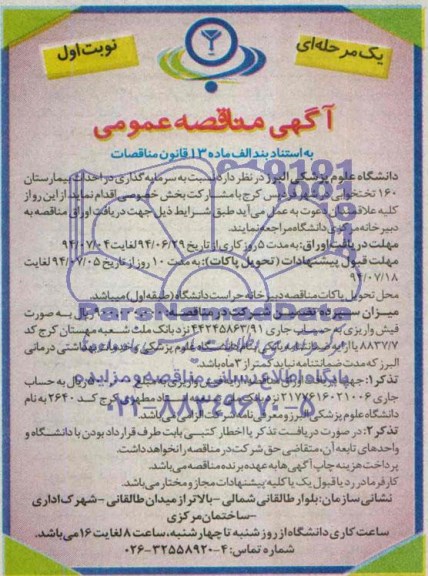 یک مرحله‌ای
نوبت اول
آگهی مناقصه عمومی
به استناد بند الف ماده ۱۳ قانون مناقصات
دانشگاه علوم پزشکی البرز در نظر دارد نسبت به سرمایه گذاری در احداث بیمارستان
۱۶۰ تختخوابی کرج با مشارکت بخش خصوصی اقدام نماید. از این رو از
کلیه علاقمندان دعوت به عمل می آید طبق شرایط ذیل جهت دریافت اوراق مناقصه به
دبیرخانه مرکزی دانشگاه مراجعه نمایند.
مهلت دریافت اوراق: به مدت ۵ روز کاری از تاریخ ۹۴/۰۶/۲۹ لغایت ۹۴/۰۷/۰۴
مهلت قبول پیشنهادات (تحویل پاکات): به مدت ۱۰ روز از تاریخ ۹۴/۰۷/۰۵ لغایت
۹۴/۰۷/۱۸
محل تحویل پاکات مناقصه دبیرخانه حراست دانشگاه (طبقه اول) میباشد.
میزان سپرده تضمین شرکت در مناقصه: ریال به صورت
فیش واریزی به حساب جاری ۴۴۲۴۵۸۶۳/۹۱ نزد بانک ملت شعبه مهستان کرج کد
۸۸۳۷/۷ یا ارایه ضمانتنامه بانکی بنام دانشگاه علوم پزشکی و خدمات بهداشتی درمانی
البرز که مدت ضمانتنامه نباید کمتر از ۳ ماه باشد.
تذکر۱: جهت دریافت اسناد مناقصه ارایه فیش واریزی به مبلغ ریال به حساب
جاری ۲۱۷۷۶۱۶۰۲۱۰۰۶ نزد بانک کرج کد ۲۶۴۰ به نام
دانشگاه علوم پزشکی البرز و معرفی نامه شرکت الزامی می باشد.
تذکر۲: در صورت دریافت تذکر یا اخطار کتبی بابت طرف قرارداد بودن با دانشگاه و
واحدهای تابعه آن، متقاضی حق شرکت در مناقصه را نخواهد داشت.
پرداخت هزینه چاپ آگهی ها به عهده برنده مناقصه می باشد.
کارفرما در رد یا قبول یک یا کلیه پیشنهادات مجاز و مختار می باشد.
نشانی سازمان: بلوار طالقانی شمالی – بالاتر از میدان طالقانی – شهرک اداری
– ساختمان مرکزی
ساعت کاری دانشگاه از روز شنبه تا چهارشنبه، ساعت ۸ لغایت ۱۶ می باشد.
شماره تماس: ۴-۳۲۵۵۸۹۲۰-۰۲۶
ParsNamadData
پایگاه اطلاع رسانی مناقصه و مزایده
۰۲۱-۸۸۳۴۹۶۷۰-۵